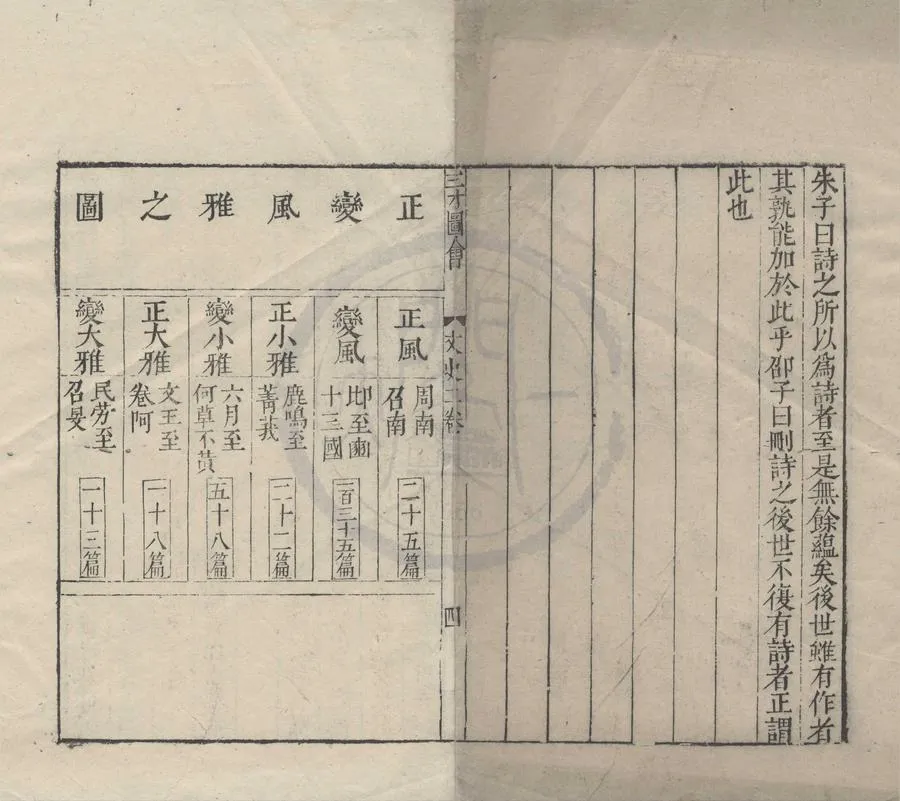 朱子曰詩之所以爲詩者至是無餘蘊矣後世雖有作者
其孰能加於此乎邵子曰刪詩之後世不復有詩者正謂
此也
三才圖會
文史二卷
四
正變風雅之圖
正風
周南
召南
二十五篇
變風
邶至豳
十三國
一百三十五篇
正小雅
鹿鳴至
菁莪
二十二篇
變小雅
六月至
何草不黃
五十八篇
正大雅
文王至
卷阿
一十八篇
變大雅
民勞至
召旻
一十三篇